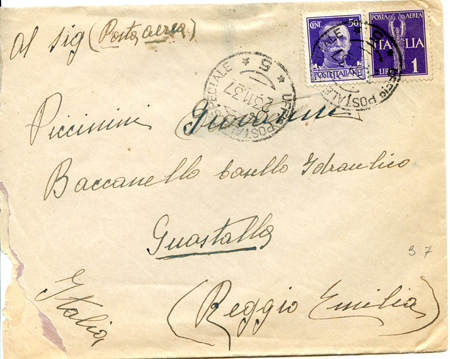 Al Sig (Posta aerea)
CENT. 50
POSTE ITALIANE
POSTA AEREA
ITALIA
LIRE 1
UFFIO POSTALE SPECIALE
23.11.37
* 5 *
Piccinini Giovanni
Baccanello casello Idraulico
Guastalla
(Reggio Emilia)
Italia
37